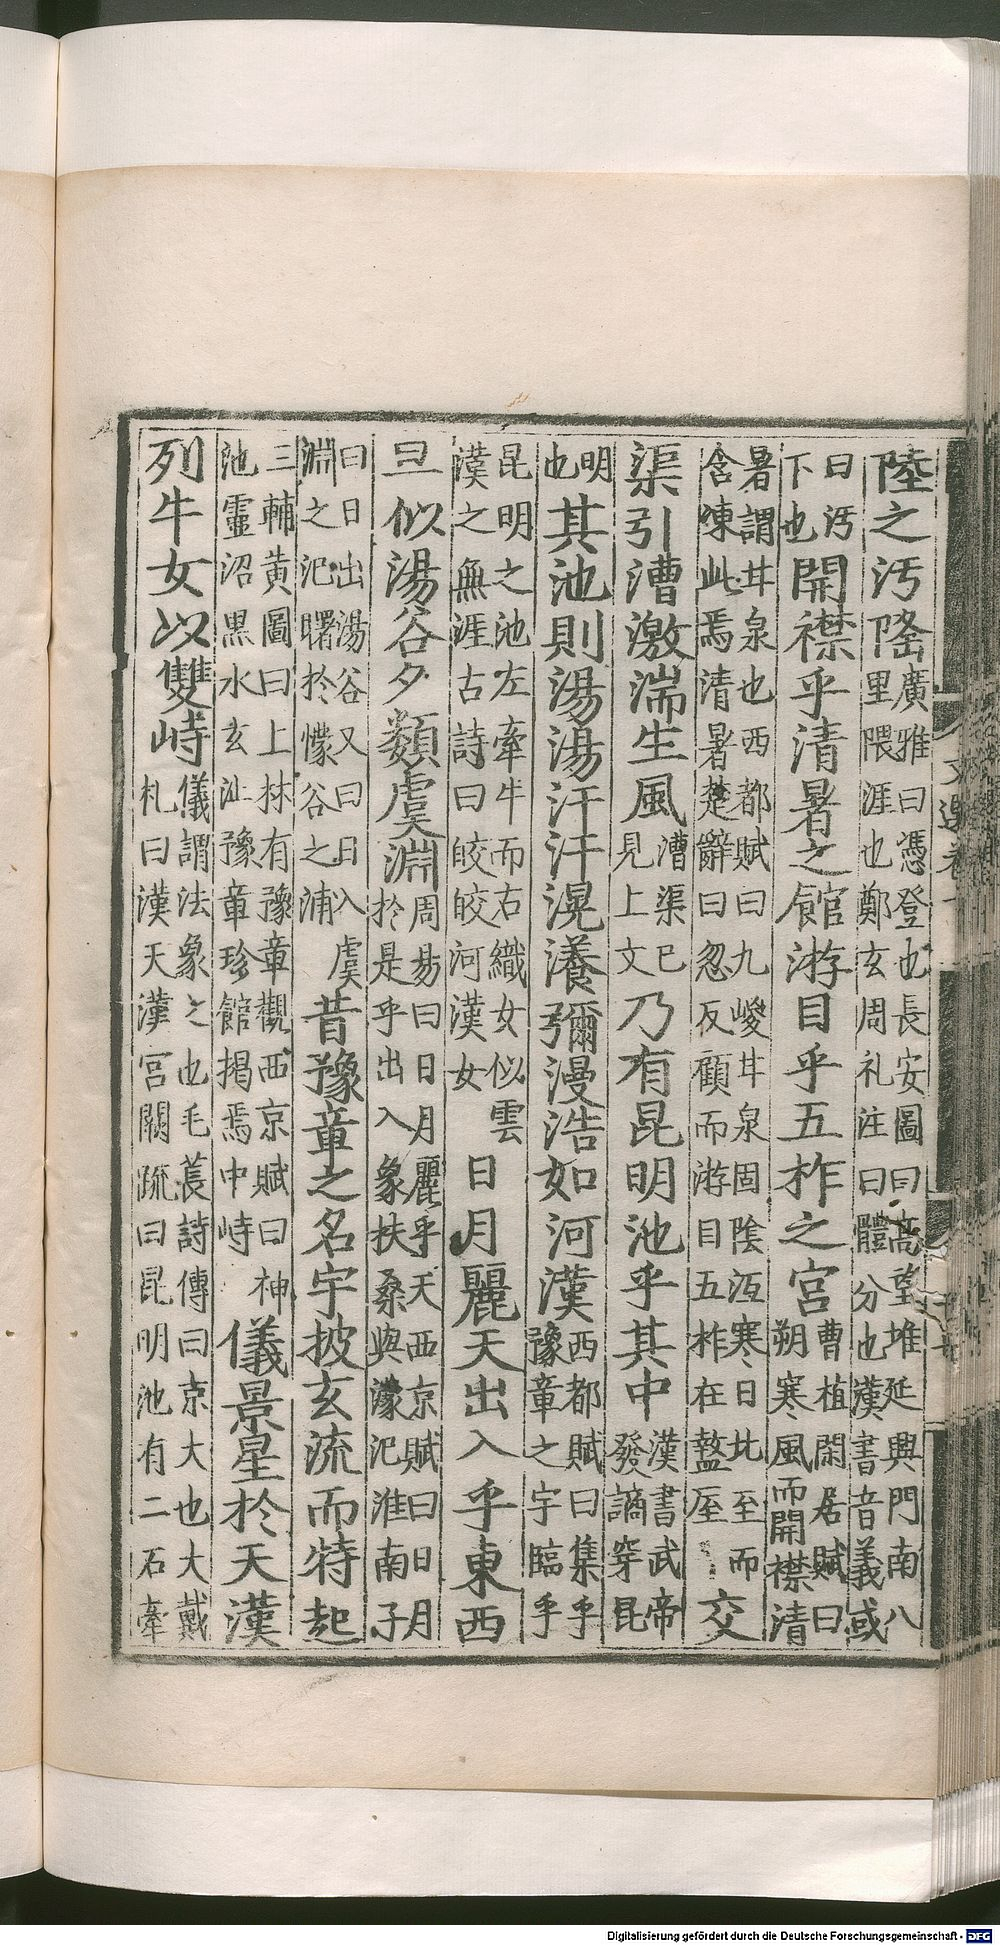 陸之汚隆廣雅曰憑登也長安圖曰高望堆延興門南八里隈涯也鄭玄周礼注曰體分也漢書音義或
曰汚下也開襟乎清暑之館游目乎五柞之宮曹植閑居賦曰朔寒風而開襟清
暑謂甘泉也西都賦曰九嵕甘泉固陰沍寒日北至而含凍此焉清暑楚辭曰忽反顧而游目五柞在盩厔交
渠引漕激湍生風漕渠已見上文乃有昆明池乎其中漢書武帝發謫穿昆
明也其池則湯湯汗汗滉瀁彌漫浩如河漢西都賦曰集乎豫章之宇臨乎
昆明之池左牽牛而右織女似雲漢之無涯古詩曰皎皎河漢女日月麗天出入乎東西
旦似湯谷夕類虞淵周易曰日月麗乎天西京賦曰日月於是乎出入象扶桑與濛汜淮南子
曰日出湯谷又曰日入虞淵之汜曙於懞谷之浦昔豫章之名宇披玄流而特起
三輔黃圖曰上林有豫章觀西京賦曰神池靈沼黑水玄沚豫章珍館揭焉中峙儀景星於天漢
列牛女以雙峙儀謂法象之也毛萇詩傳曰京大也大戴札曰漢天漢宮關疏曰昆明池有二石牽
文選卷十
Digitalisierung gefördert durch die Deutsche Forschungsgemeinschaft - DFG